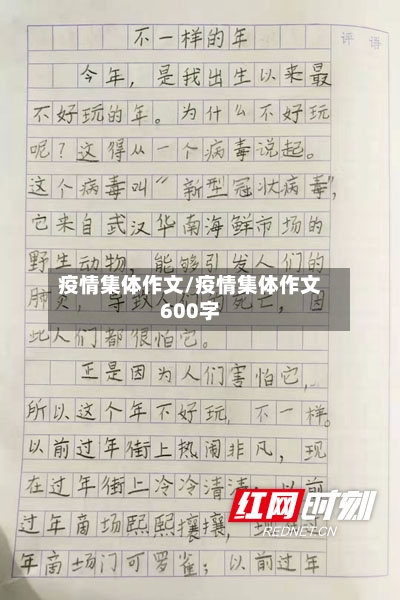 不一样的年
评语
今年，是我出生以来最
不好玩的年。为什么不好玩
呢？这得从一个病毒说起。
这个病毒叫“新型冠状病毒”，
它来自武汉华南海鲜市场的
野生动物，能够引发人们的
疫情集体作文/疫情集体作文
600字
肺炎，导致人们的死亡，因
此人们都很怕它。
正是因为人们害怕它，
所以这个年不好玩，不一样。
以前过年街上热闹非凡，现
在过年街上冷冷清清；以前
过年商场熙熙攘攘，
年商场门可罗雀；以前过年
红网时刻
REDNET.CN